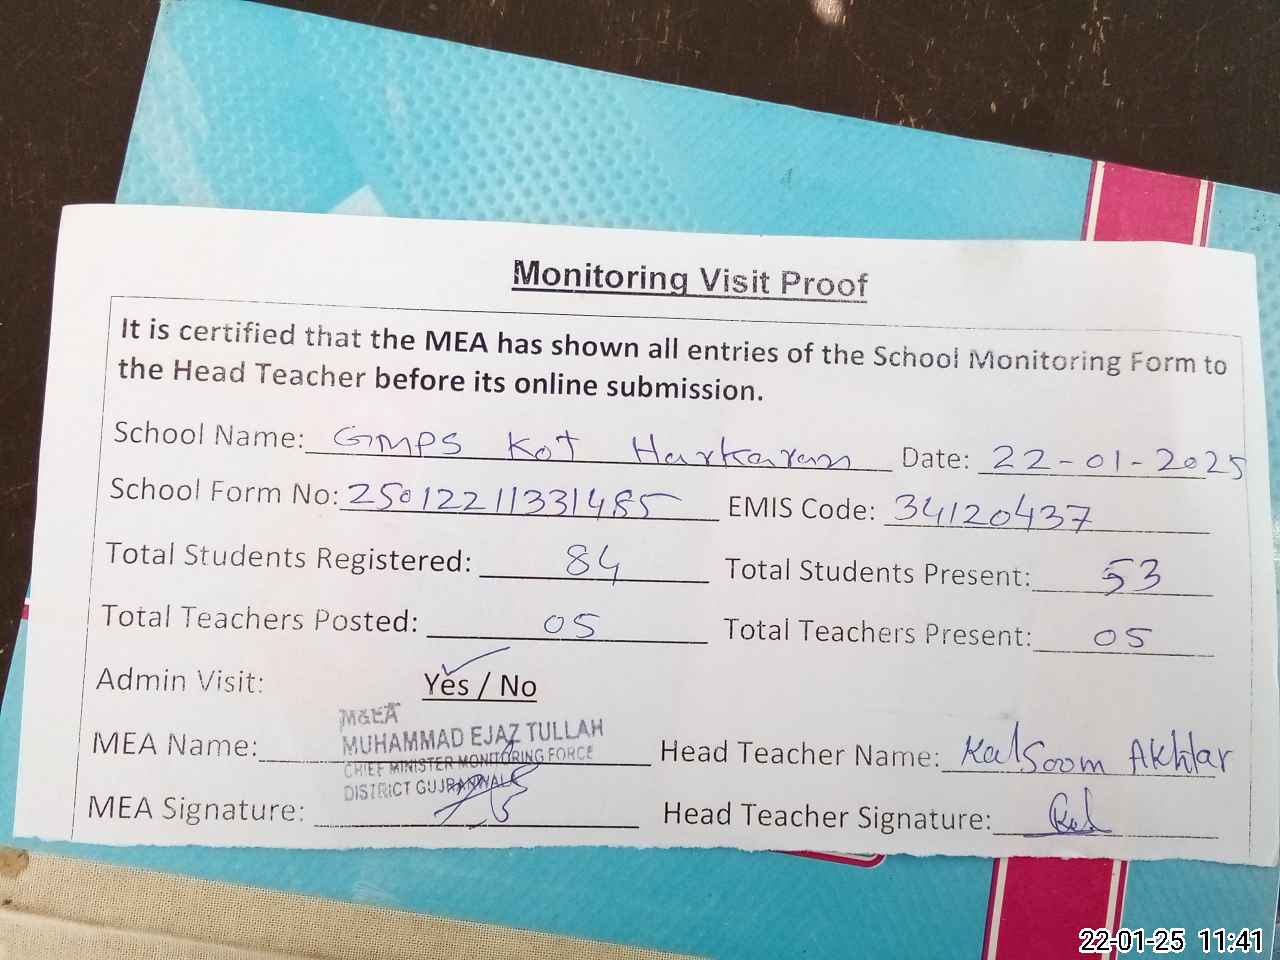 Monitoring Visit Proof
It is certified that the MEA has shown all entries of the School Monitoring Form to
the Head Teacher before its online submission.
School Name: GMPS Kot Harkaran Date: 22-01-2025
School Form No: 25012211331485 EMIS Code: 34120437
Total Students Registered: 84 Total Students Present: 53
Total Teachers Posted: 05 Total Teachers Present: 05
Admin Visit: Yes / No
M&EA
MUHAMMAD EJAZ TULLAH
CHIEF MINISTER MONITORING FORCE
DISTRICT GUJRANWALA
MEA Name: Head Teacher Name: Kalsoom Akhtar
MEA Signature: Head Teacher Signature:
22-01-25 11:41